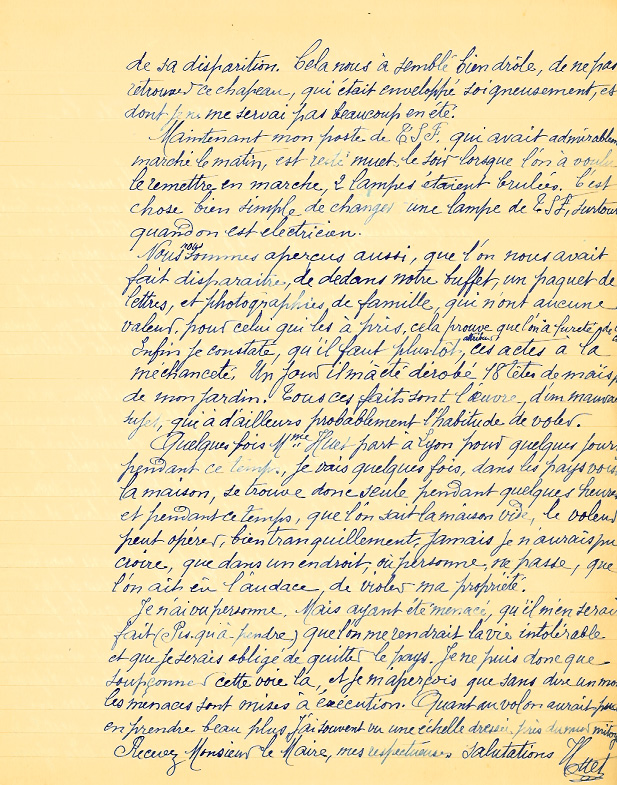 de sa disparition. Cela nous à semblé bien drôle, de ne pas
retrouver ce chapeau, qui était enveloppé soigneusement, et
dont je ne me servai pas beaucoup en été.
Maintenant mon poste de T.S.F. qui avait admirablem
marché le matin, est resté muet le soir lorsque l'on à voulu
le remettre en marche, 2 lampes étaient brulées. C'est
chose bien simple de changer une lampe de T.S.F, surtout
quand on est electricien.
Nous nous sommes aperçus aussi, que l'on nous avait
fait disparaitre, de dedans notre buffet, un paquet de
lettres, et photographies de famille, qui n'ont aucune
valeur, pour celui qui les à pris, cela prouve que l'on à fureté
Enfin je constate, qu'il faut plustôt, attribuer ces actes à la
mechanceté. Un jour il m'a été dérobé 18 têtes de maïs
de mon jardin. Tous ces faits sont l'œuvre, d'un mauvai
sujet, qui à d'ailleurs probablement l'habitude de voler.
Quelques fois Mme Huet part à Lyon pour quelques jour
pendant ce temps, je vais quelques fois, dans les pays vois
la maison, se trouve donc seule pendant quelques heures
et pendant ce temps, que l'on sait la maison vide, le voleur
peut opérer, bien tranquillement, jamais je n'aurais pu
croire, que dans un endroit, ou personne, ne passe, que
l'on ait eu l'audace, de violer ma propriété.
Je n'ai vu personne. Mais ayant été menacé, qu'il m'en serai
fait (Pis qu'à pendre) que l'on me rendrait la vie intolérable
et que je serais obligé de quitter le pays. Je ne puis donc que
soupçonner cette voie la, et je m'aperçois que sans dire un mot
les menaces sont mises à éxécution. Quant au vol on aurait pu
en prendre beau plus j'ai souvent vu une échelle dressée, près du mur mitoy
Recevez Monsieur le Maire, mes respectueuses salutations Huet